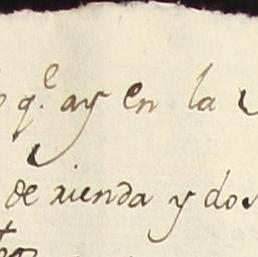 q.e ay en la
de rienda y dos